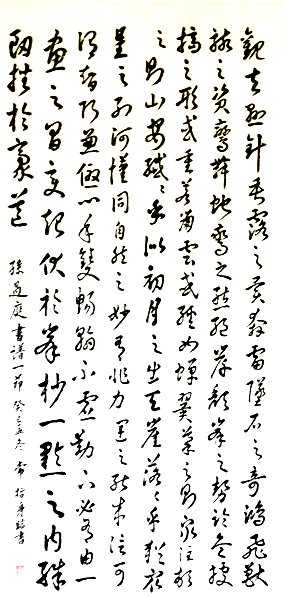 觀夫懸針垂露之異奔雷墜石之奇鴻飛獸
駭之資鸞舞蛇驚之態絕岸頹峯之勢臨危據
槁之形或重若崩雲或輕如蟬翼導之則泉注頓
之則山安纖纖乎似初月之出天崖落落乎猶衆
星之列河漢同自然之妙有非力運之能成信可
謂智巧兼優心手雙暢翰不虛動下必有由一
畫之間變起伏於峯杪一點之內殊
衄挫於豪芒
孫過庭書譜一節 癸巳 冬 書